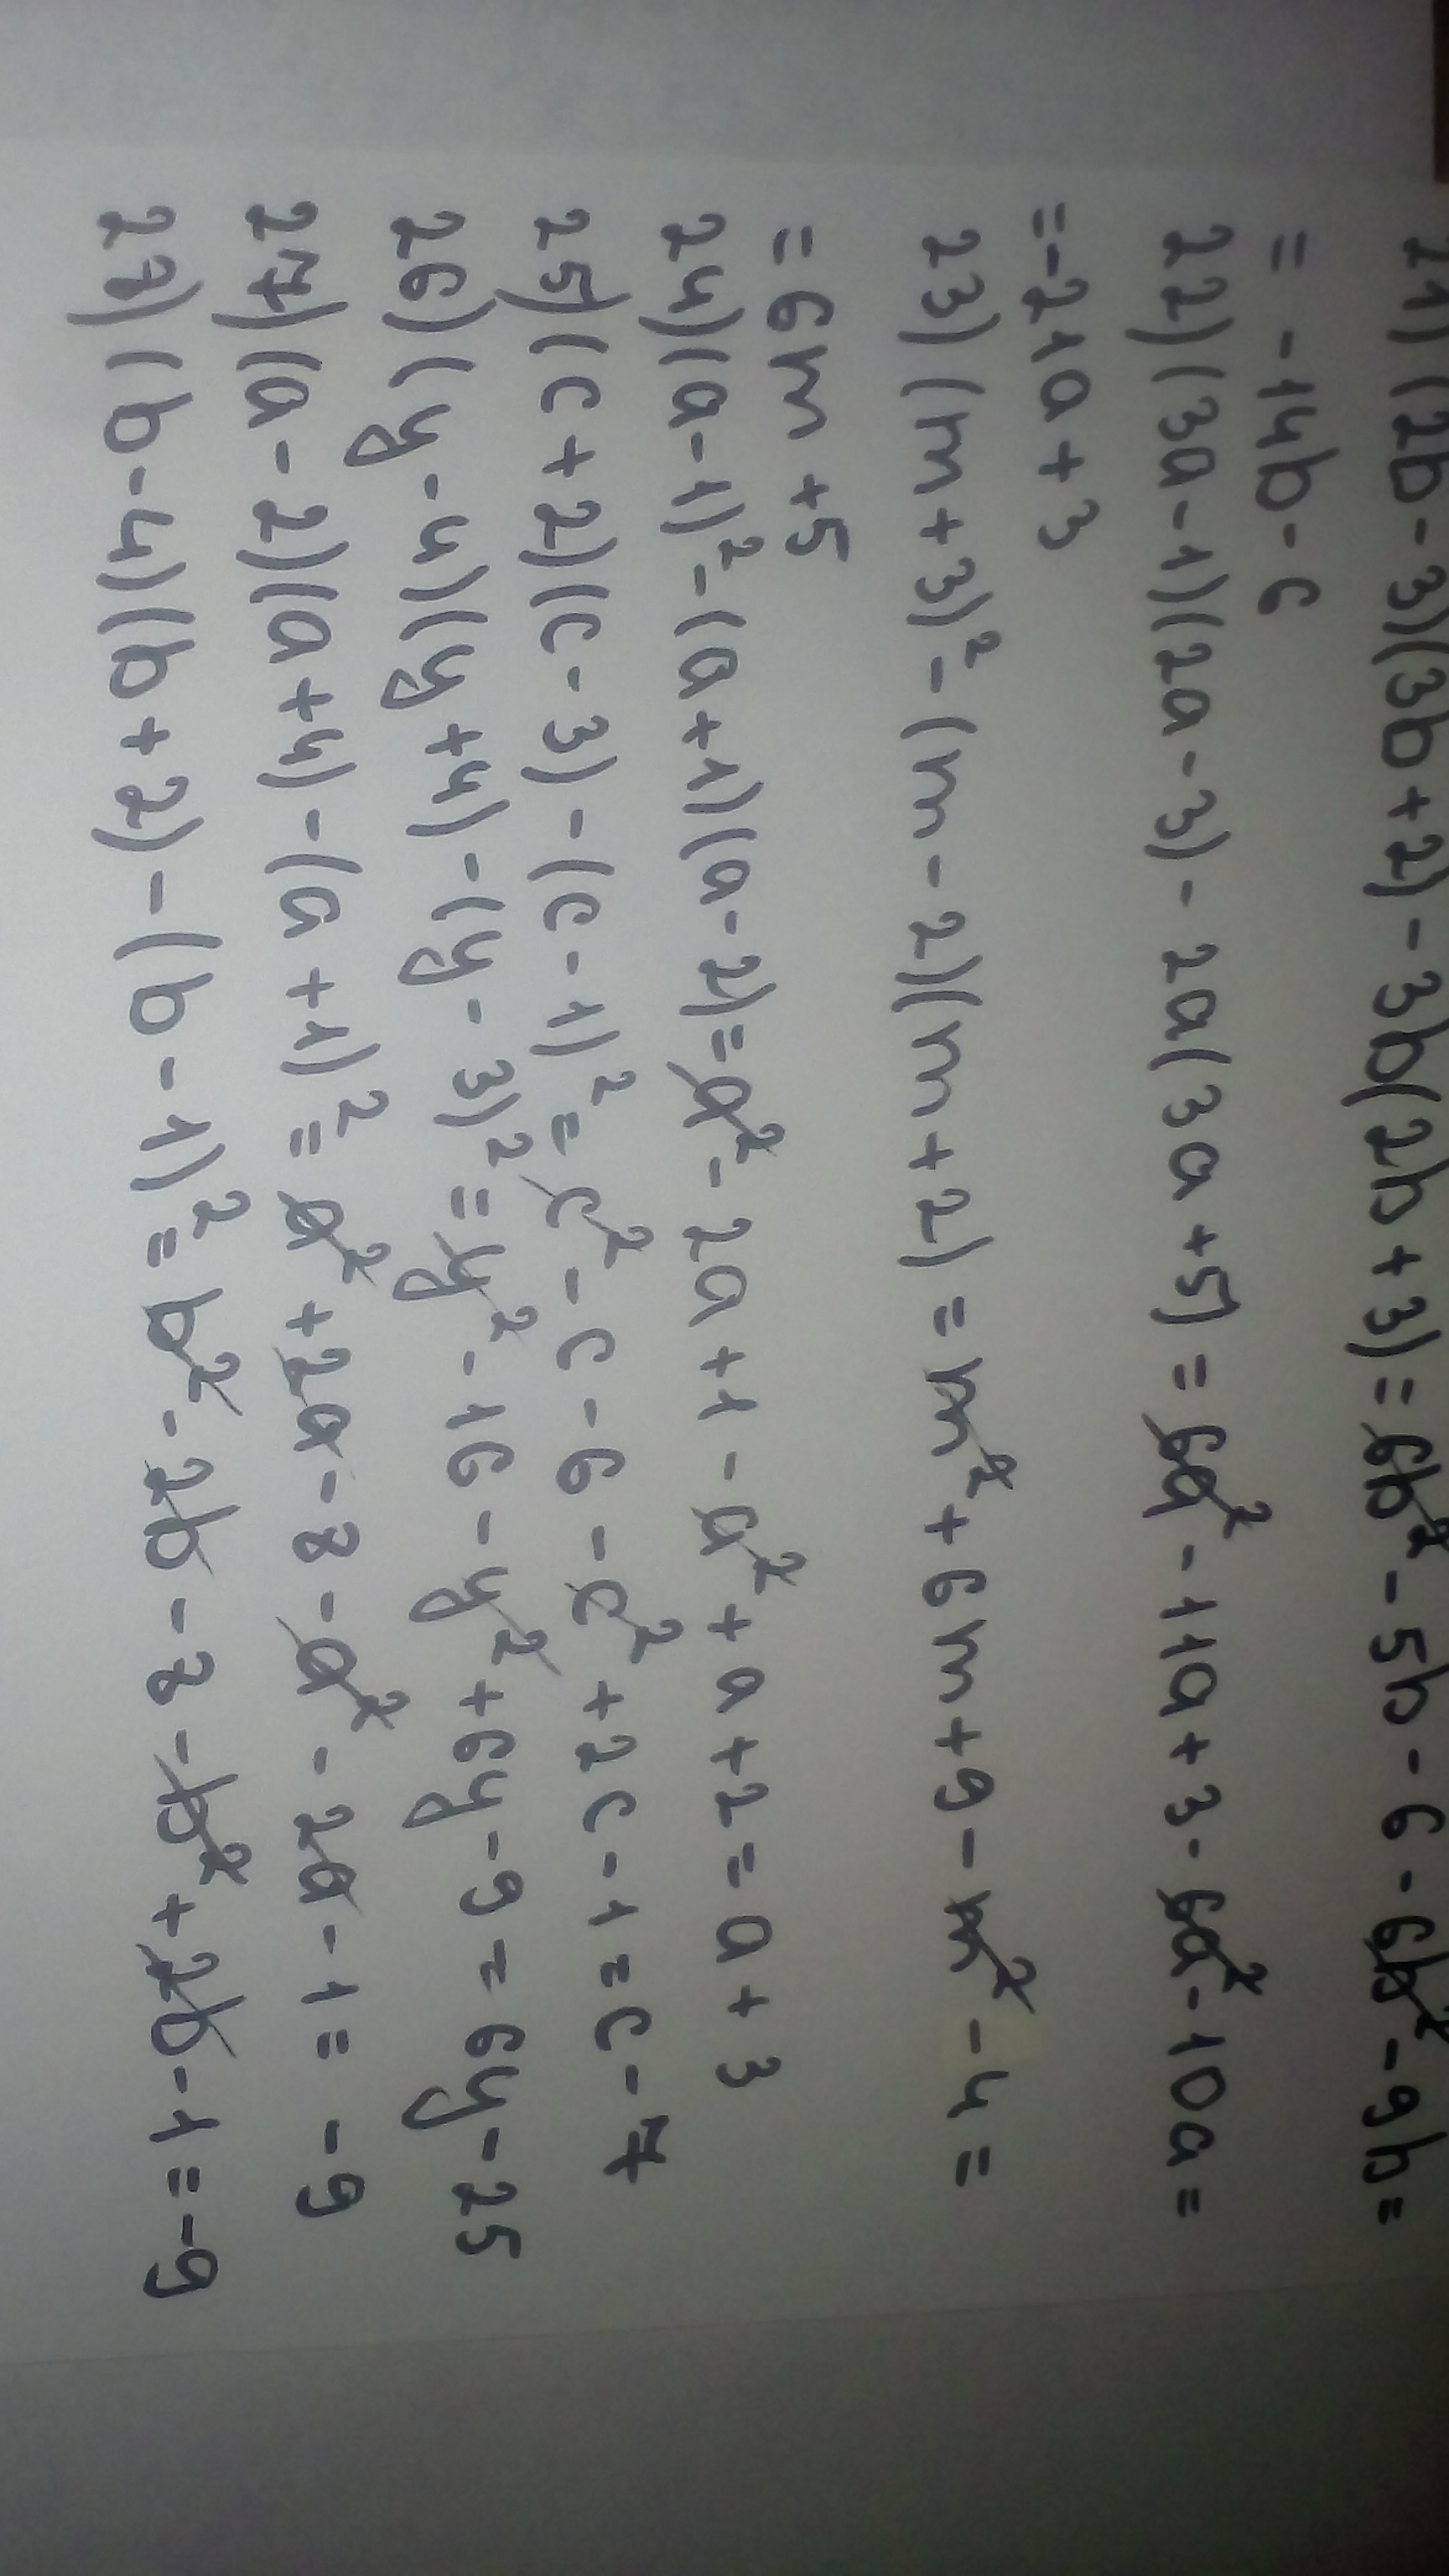 21) (2b-3)(3b+2)-3b(2b+3)=6b²-5b-6-6b²-9b=
=-14b-6
22) (3a-1)(2a-3)-2a(3a+5)=6a²-11a+3-6a²-10a=
=-21a+3
23) (m+3)²-(m-2)(m+2)=m²+6m+9-m²-4=
=6m+5
24) (a-1)²-(a+1)(a-2)=a²-2a+1-a²+a+2=a+3
25) (c+2)(c-3)-(c-1)²=c²-c-6-c²+2c-1=c-7
26) (y-4)(y+4)-(y-3)²=y²-16-y²+6y-9=6y-25
27) (a-2)(a+4)-(a+1)²=a²+2a-8-a²-2a-1=-9
27) (b-4)(b+2)-(b-1)²=b²-2b-8-b²+2b-1=-9